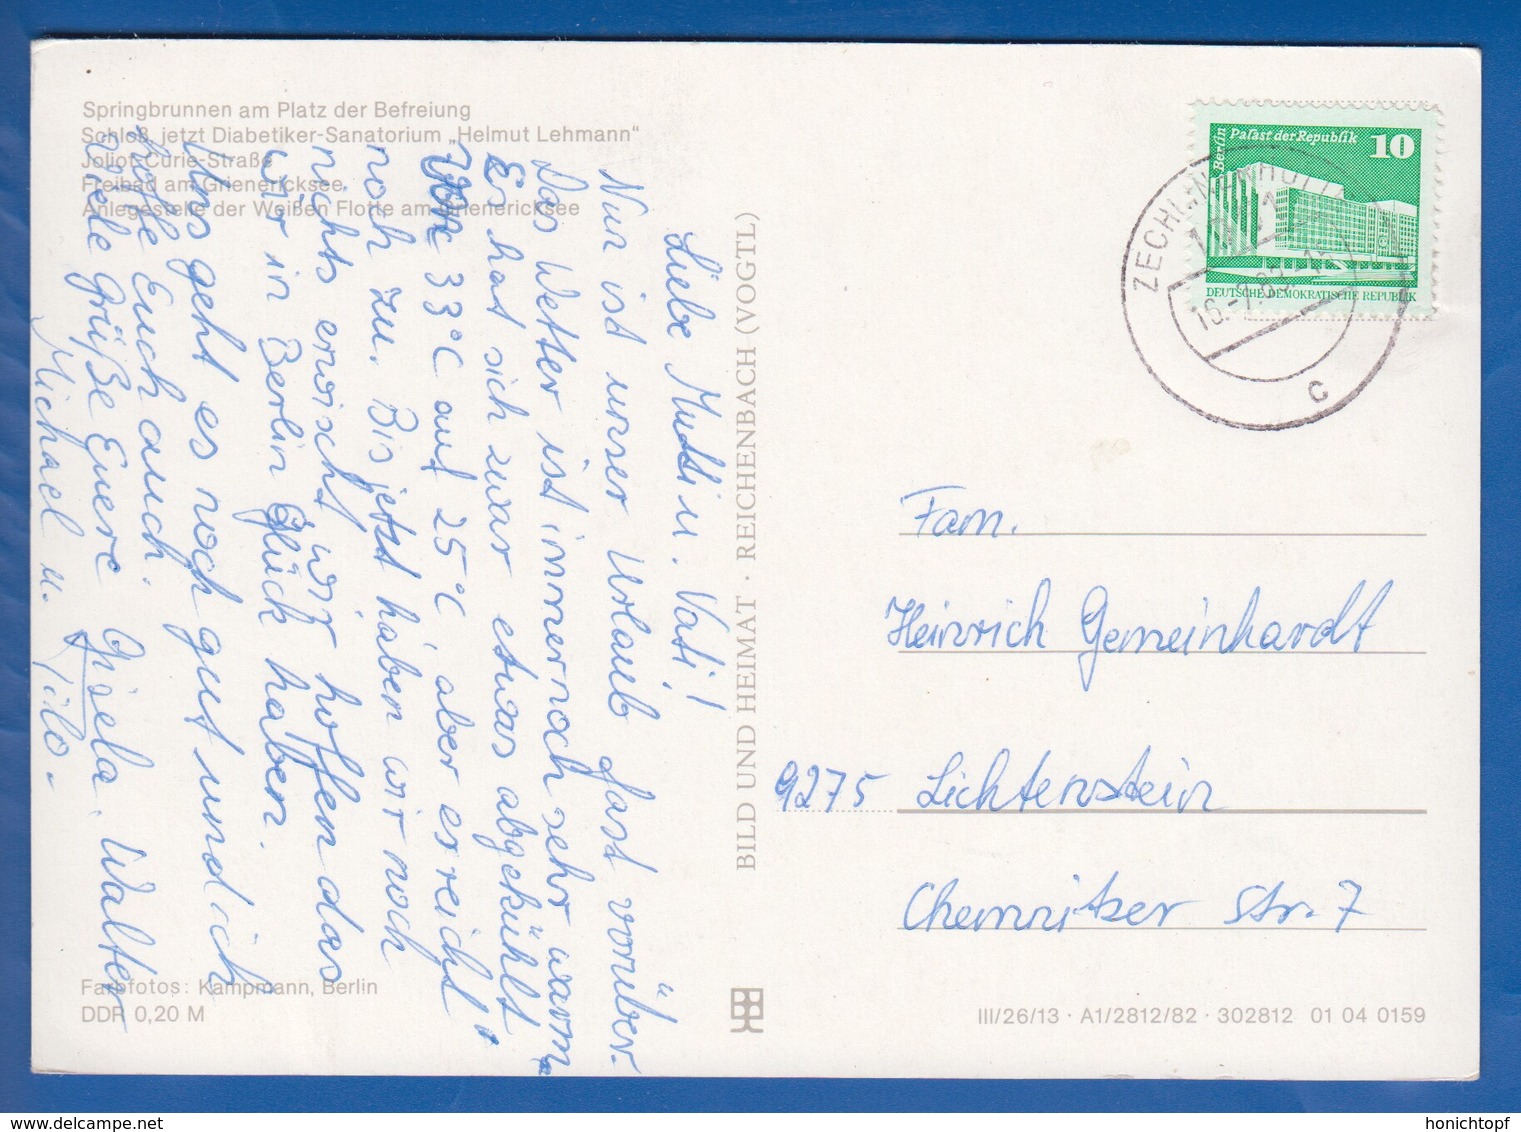 Springbrunnen am Platz der Befreiung
Schloß, jetzt Diabetiker-Sanatorium „Helmut Lehmann“
Joliot-Curie-Straße
Freibad am Grienericksee
Anlegestelle der Weißen Flotte am Grienericksee
Liebe Mutti u. Vati!
Nun ist unser Urlaub fast vorüber.
Das Wetter ist immernoch sehr warm.
Es hat sich zwar etwas abgekühlt
von 33°C auf 25°C, aber es reicht
noch zu. Bis jetzt haben wir noch
nichts erwischt, wir hoffen das
wir in Berlin Glück haben.
Uns geht es noch gut und ich
hoffe Euch auch.
Viele Grüße Euere Gisela, Walter
Michael u. Tilo.
Farbfotos: Kampmann, Berlin
DDR 0,20 M
BILD UND HEIMAT · REICHENBACH (VOGTL)
Berlin
Palast der Republik
10
DEUTSCHE DEMOKRATISCHE REPUBLIK
16.-7.83
c
Fam.
Heinrich Gemeinhardt
9275 Lichtenstein
Chemnitzer Str. 7
III/26/13 · A1/2812/82 · 302812 01 04 0159
honichtopf